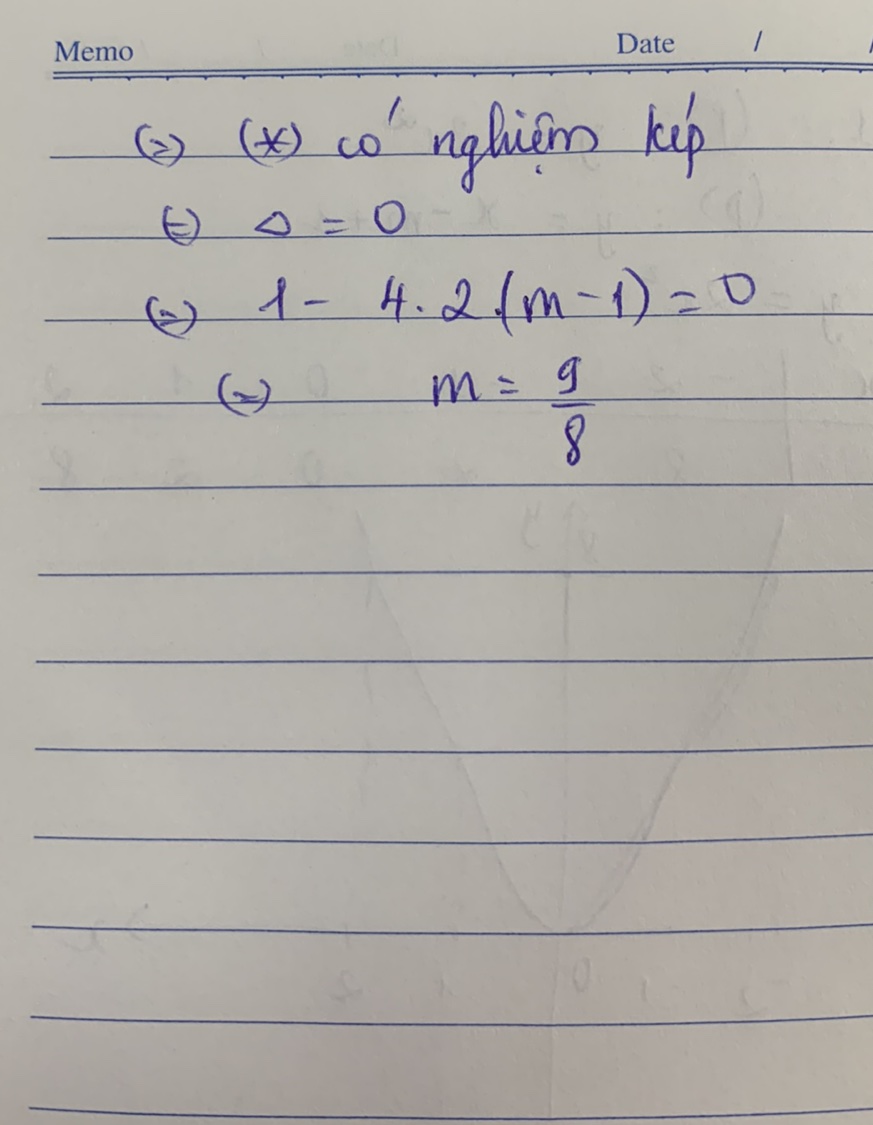 Memo Date / /
(=) (*) có nghiệm kép
(=) Δ = 0
(=) 1 - 4.2.(m-1) = 0
(=) m = 9/8